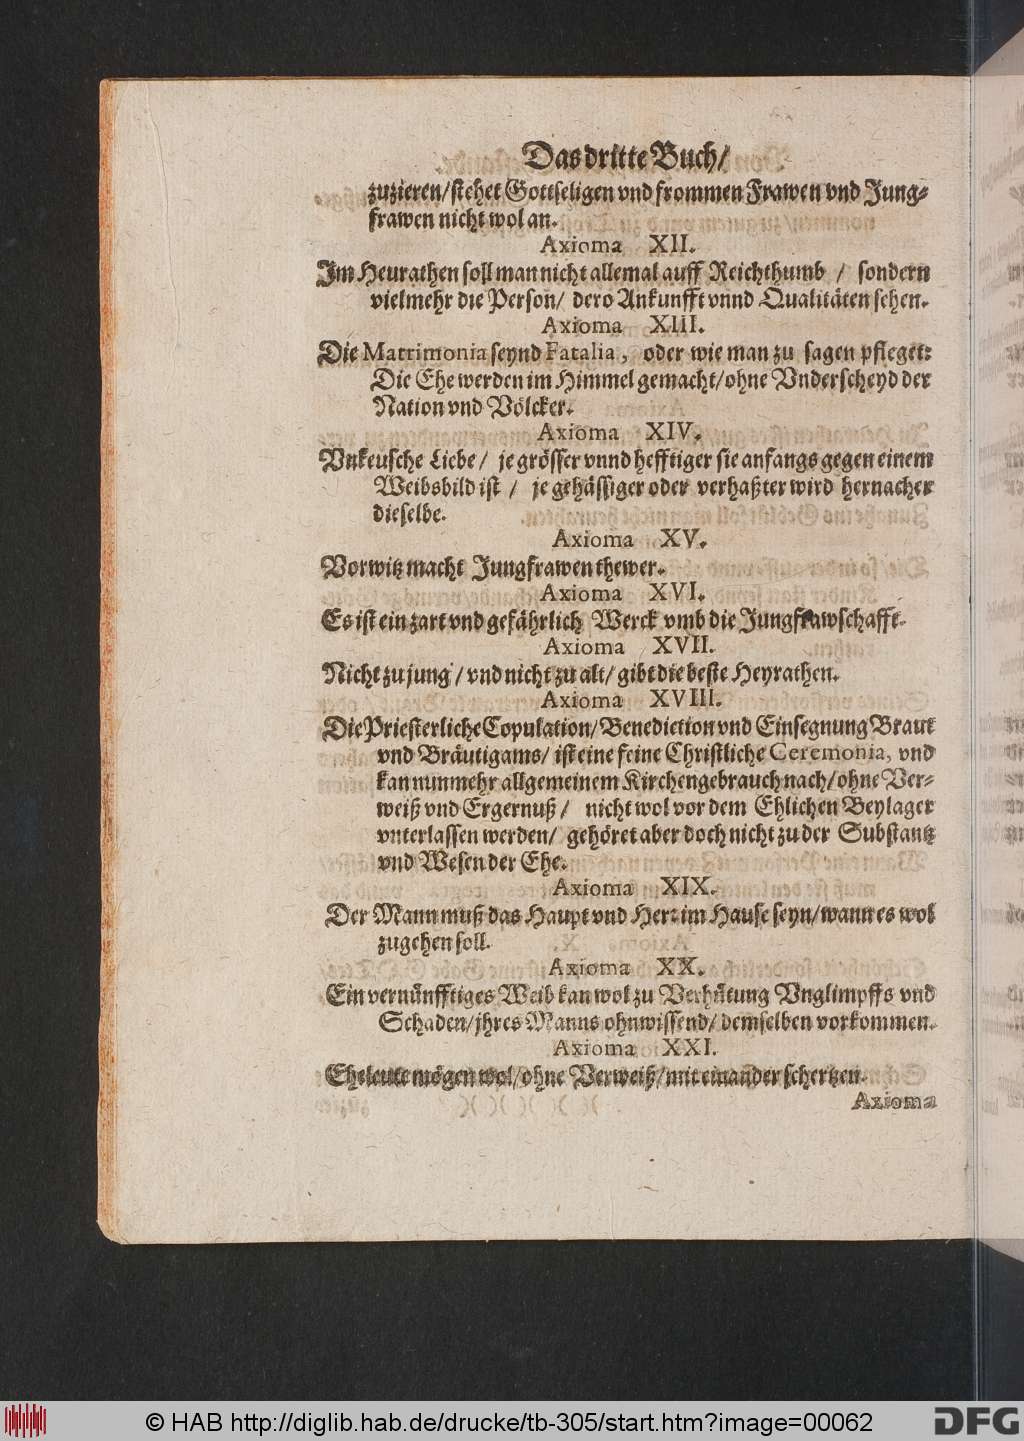 Das dritte Buch/
zuzieren/stehet Gottseligen vnd frommen Frawen vnd Jung-
frawen nicht wol an.
Axioma XII.
Im Heurathen soll man nicht allemal auff Reichthumb / sondern
vielmehr die Person/ dero Ankunfft vnnd Qualitäten sehen.
Axioma XIII.
Die Matrimonia seynd Fatalia, oder wie man zu sagen pfleget:
Die Ehe werden im Himmel gemacht/ohne Vnderscheyd der
Nation vnd Völcker.
Axioma XIV.
Vnkeusche Liebe/ je grösser vnnd hefftiger sie anfangs gegen einem
Weibsbild ist / je gehässiger oder verhaßter wird hernacher
dieselbe.
Axioma XV.
Vorwitz macht Jungfrawen thewer.
Axioma XVI.
Es ist ein zart vnd gefährlich Werck vmb die Jungfrawschafft.
Axioma XVII.
Nicht zu jung/ vnd nicht zu alt/ gibt die beste Heyrathen.
Axioma XVIII.
Die Priesterliche Copulation/ Benediction vnd Einsegnung Braut
vnd Bräutigams/ ist eine feine Christliche Ceremonia, vnd
kan nunmehr allgemeinem Kirchengebrauch nach/ohne Ver-
weiß vnd Ergernuß/ nicht wol vor dem Ehlichen Beylager
vnterlassen werden/ gehöret aber doch nicht zu der Substantz
vnd Wesen der Ehe.
Axioma XIX.
Der Mann muß das Haupt vnd Herr im Hause seyn/wann es wol
zugehen soll.
Axioma XX.
Ein vernünfftiges Weib kan wol zu Verhütung Vnglimpffs vnd
Schaden/jhres Manns ohnwissend/ demselben vorkommen.
Axioma XXI.
Eheleute mögen wol/ohne Verweiß/mit einander schertzen.
Axioma
© HAB http://diglib.hab.de/drucke/tb-305/start.htm?image=00062
DFG